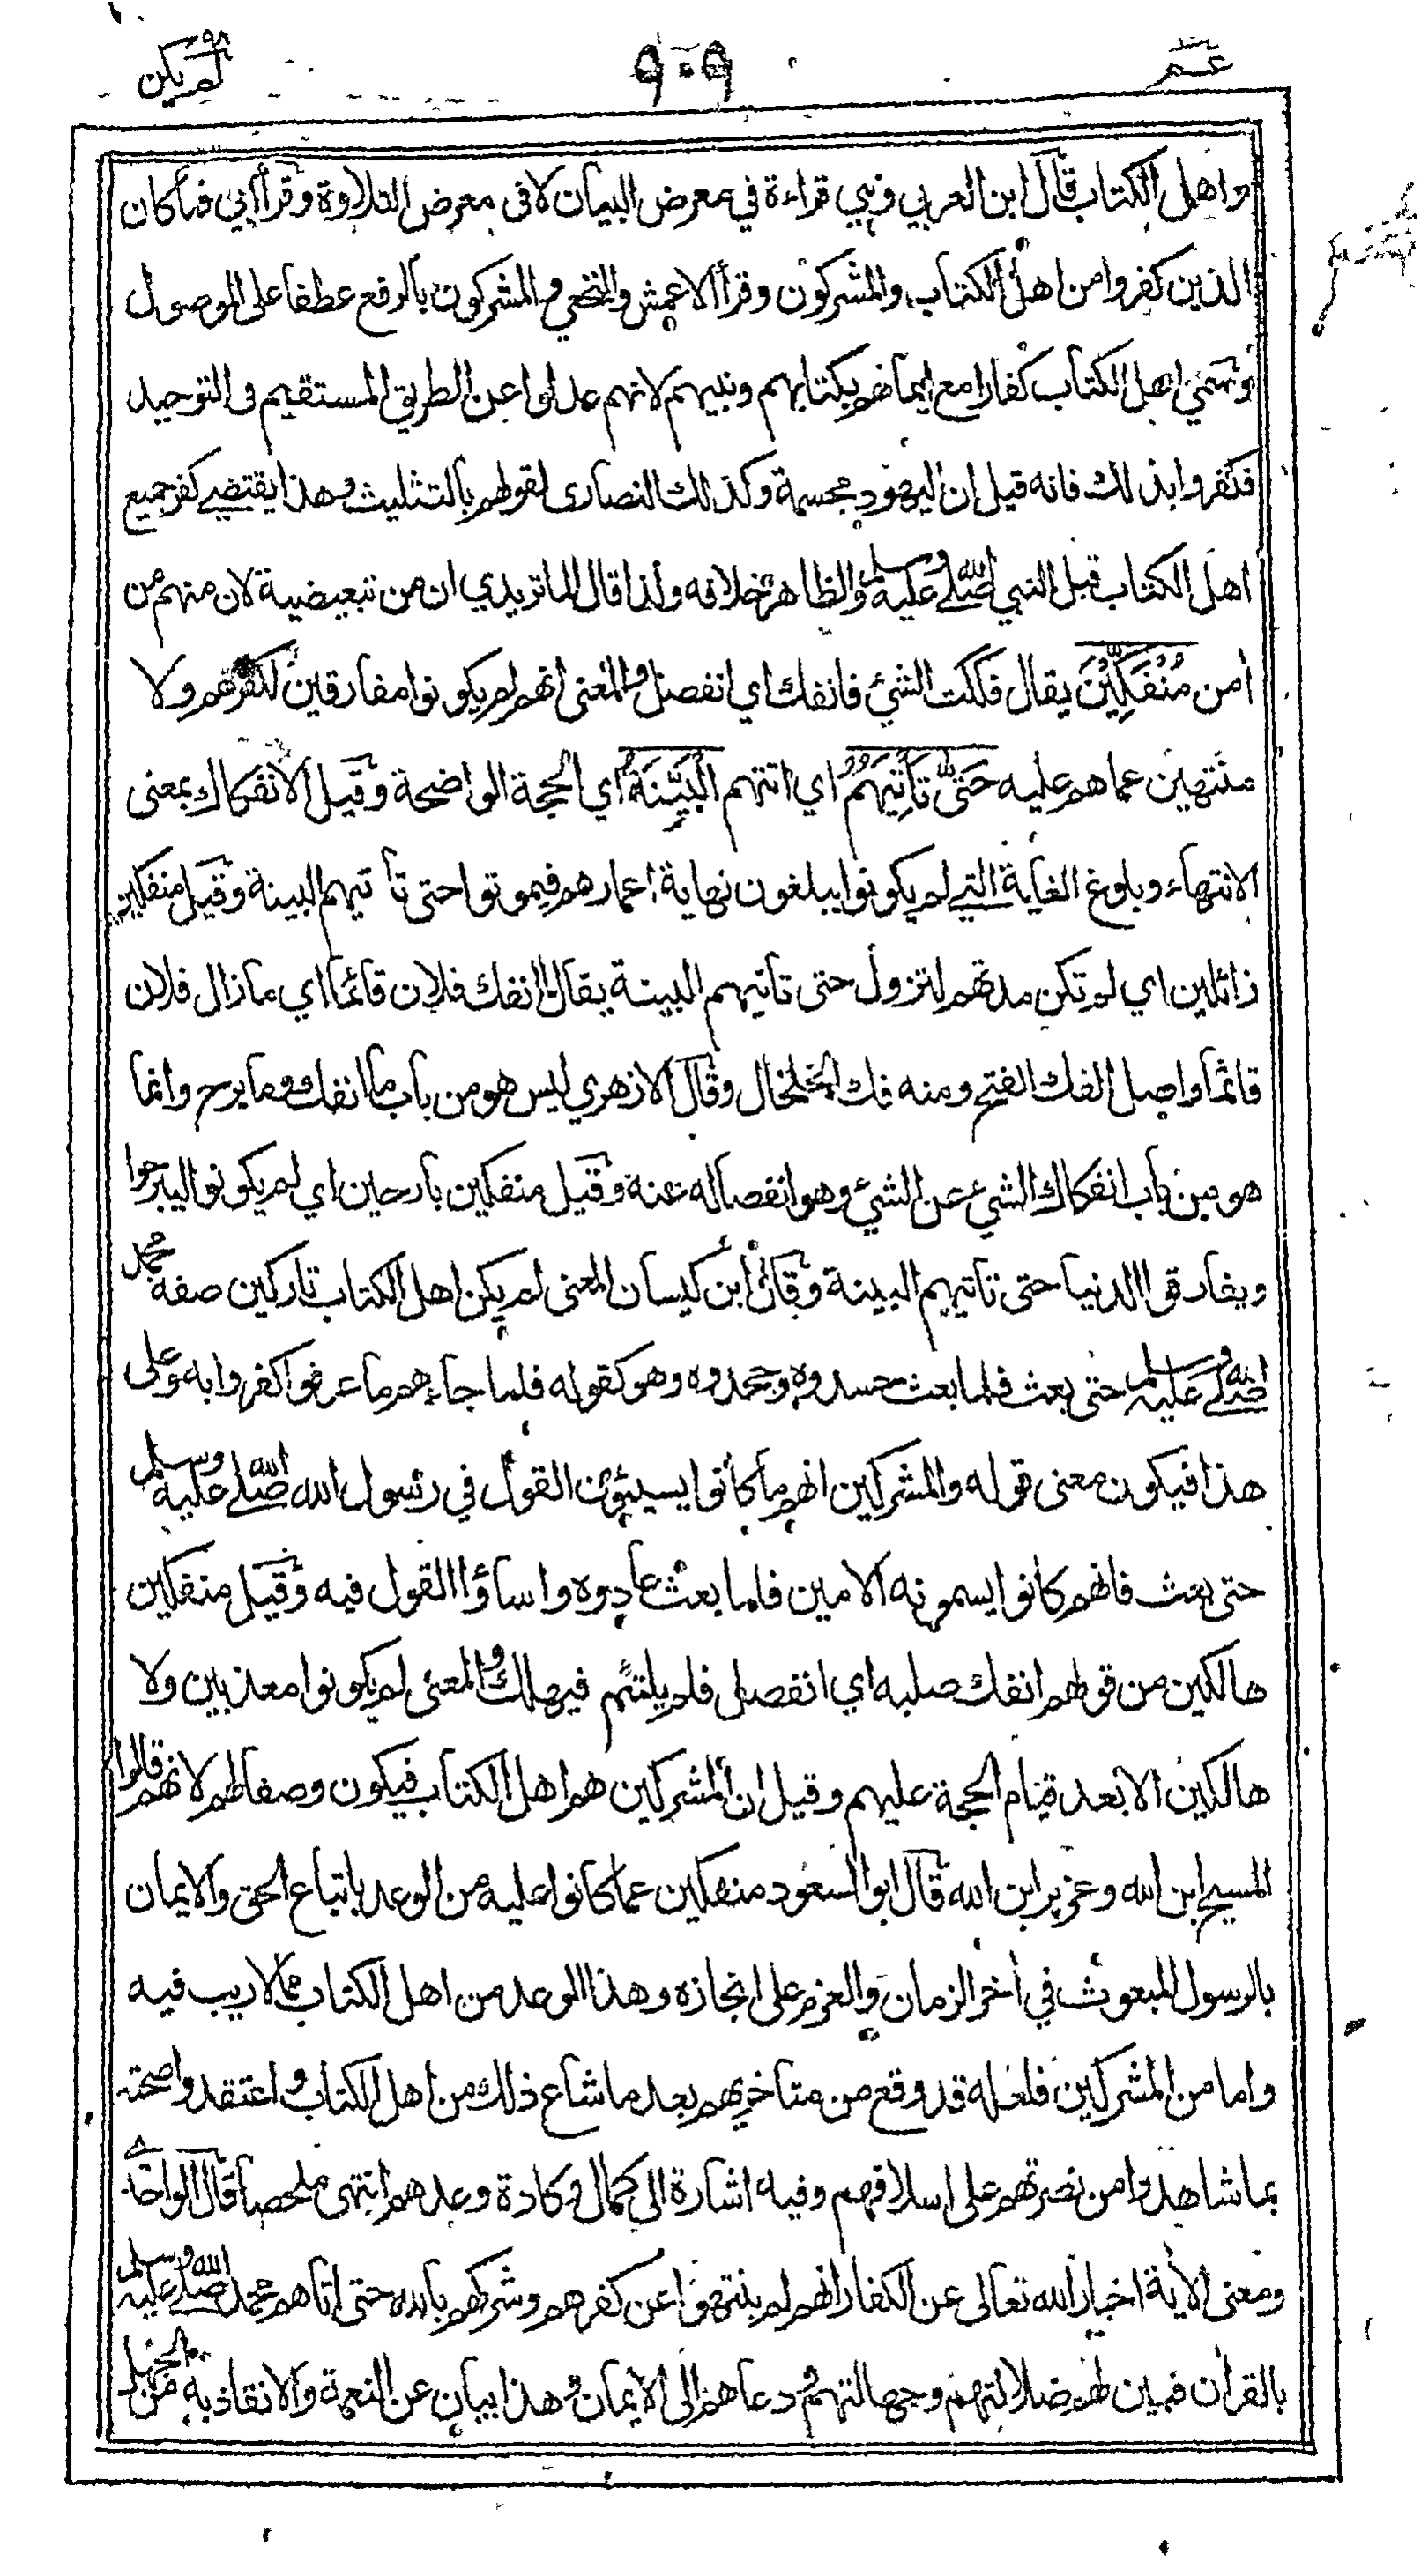 عم ٩٠٩ لم يكن ٩٨
واهل الكتاب قال ابن العربي وهي قراءة في معرض البيان لا في معرض التلاوة وقرأ ابي فما كان
الذين كفروا من اهل الكتاب والمشركون وقرأ الاعمش والنخعي والمشركون بالرفع عطفا على الموصول
وسمي اهل الكتاب كفارا مع ايمانهم بكتابهم ونبيهم لانهم عدلوا عن الطريق المستقيم في التوحيد
فكفروا بذلك فانه قيل ان اليهود مجسمة وكذلك النصارى لقولهم بالتثليث وهذا يقتضي كفر جميع
اهل الكتاب قبل النبي صلى الله عليه وسلم والظاهر خلافه ولذا قال الماتريدي ان من تبعيضية لان منهم من
امن مُنْفَكِّيْنَ يقال فككت الشئ فانفك اي انفصل والمعنى انهم لم يكونوا مفارقين لكفرهم ولا
منتهين عما هم عليه حَتّٰى تَأْتِيَهُمُ اي اتتهم الْبَيِّنَةُ اي الحجة الواضحة وقيل الانفكاك بمعنى
الانتهاء وبلوغ الغاية التي لم يكونوا يبلغون نهاية اعمارهم فيموتوا حتى تأتيهم البينة وقيل منفكين
زائلين اي لم تكن مدتهم لتزول حتى تاتيهم البينة يقال ما انفك فلان قائما اي ما زال فلان
قائما واصل الفك الفتح ومنه فك الخلخال وقال الازهري ليس هو من باب ما انفك وما برح وانما
هو من باب انفكاك الشئ عن الشئ وهو انفصاله عنه وقيل منفكين بارحين اي لم يكونوا ليبرحوا
ويفارقوا الدنيا حتى تاتيهم البينة وقال ابن كيسان المعنى لم يكن اهل الكتاب تاركين صفة محمد
صلى الله عليه وسلم حتى بعث فلما بعث حسدوه وجحدوه وهو كقوله فلما جاءهم ما عرفوا كفروا به وعلى
هذا فيكون معنى قوله والمشركين انهم ما كانوا يسيئون القول في رسول الله صلى الله عليه وسلم
حتى بعث فانهم كانوا يسمونه الامين فلما بعث عادوه واساؤا القول فيه وقيل منفكين
هالكين من قولهم انفك صلبه اي انفصل فلم يلتئم فيهلك والمعنى لم يكونوا معذبين ولا
هالكين الا بعد قيام الحجة عليهم وقيل ان المشركين هم اهل الكتاب فيكون وصفا لهم لانهم قالوا
المسيح ابن الله وعزير ابن الله قال ابو السعود منفكين عما كانوا عليه من الوعد باتباع الحق والايمان
بالرسول المبعوث في اخر الزمان والعزم على انجازه وهذا الوعد من اهل الكتاب مما لا ريب فيه
واما من المشركين فلعله قد وقع من متاخريهم بعد ما شاع ذلك من اهل الكتاب واعتقدوا صحته
بما شاهدوا من نصرتهم على اسلافهم وفيه اشارة الى كمال وكادة وعدهم انتهى ملخصا قال الواحدي
ومعنى الاية اخبار الله تعالى عن الكفار انهم لم ينتهوا عن كفرهم وشركهم بالله حتى اتاهم محمد صلى الله عليه وسلم
بالقران فبين لهم ضلالتهم وجهالتهم ودعاهم الى الايمان وهذا بيان عن النعمة والانقاذ به من الجهل